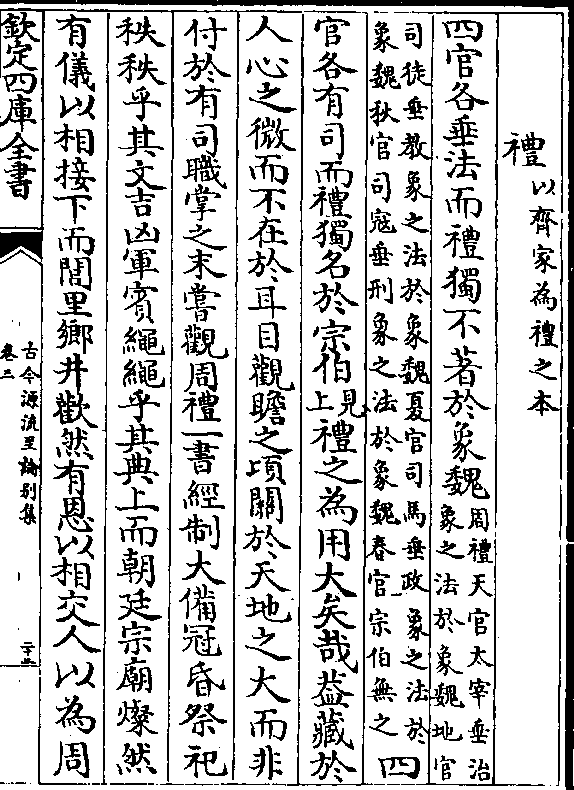 禮以齊家為禮之本
四官各垂法而禮獨不著於象魏周禮天官太宰垂治
象之法於象魏地官
司徒垂教象之法於象魏夏官司馬垂政象之法於
象魏秋官司寇垂刑象之法於象魏春官宗伯無之四
官各有司而禮獨名於宗伯見上禮之為用大矣哉葢藏於
人心之微而不在於耳目觀瞻之頃關於天地之大而非
付於有司職掌之末嘗觀周禮一書經制大備冠昏祭祀
秩秩乎其文吉凶軍賓繩繩乎其典上而朝廷宗廟燦然
有儀以相接下而閭里鄉井歡然有恩以相交人以為周
欽定四庫全書
古今源流至論別集
卷三